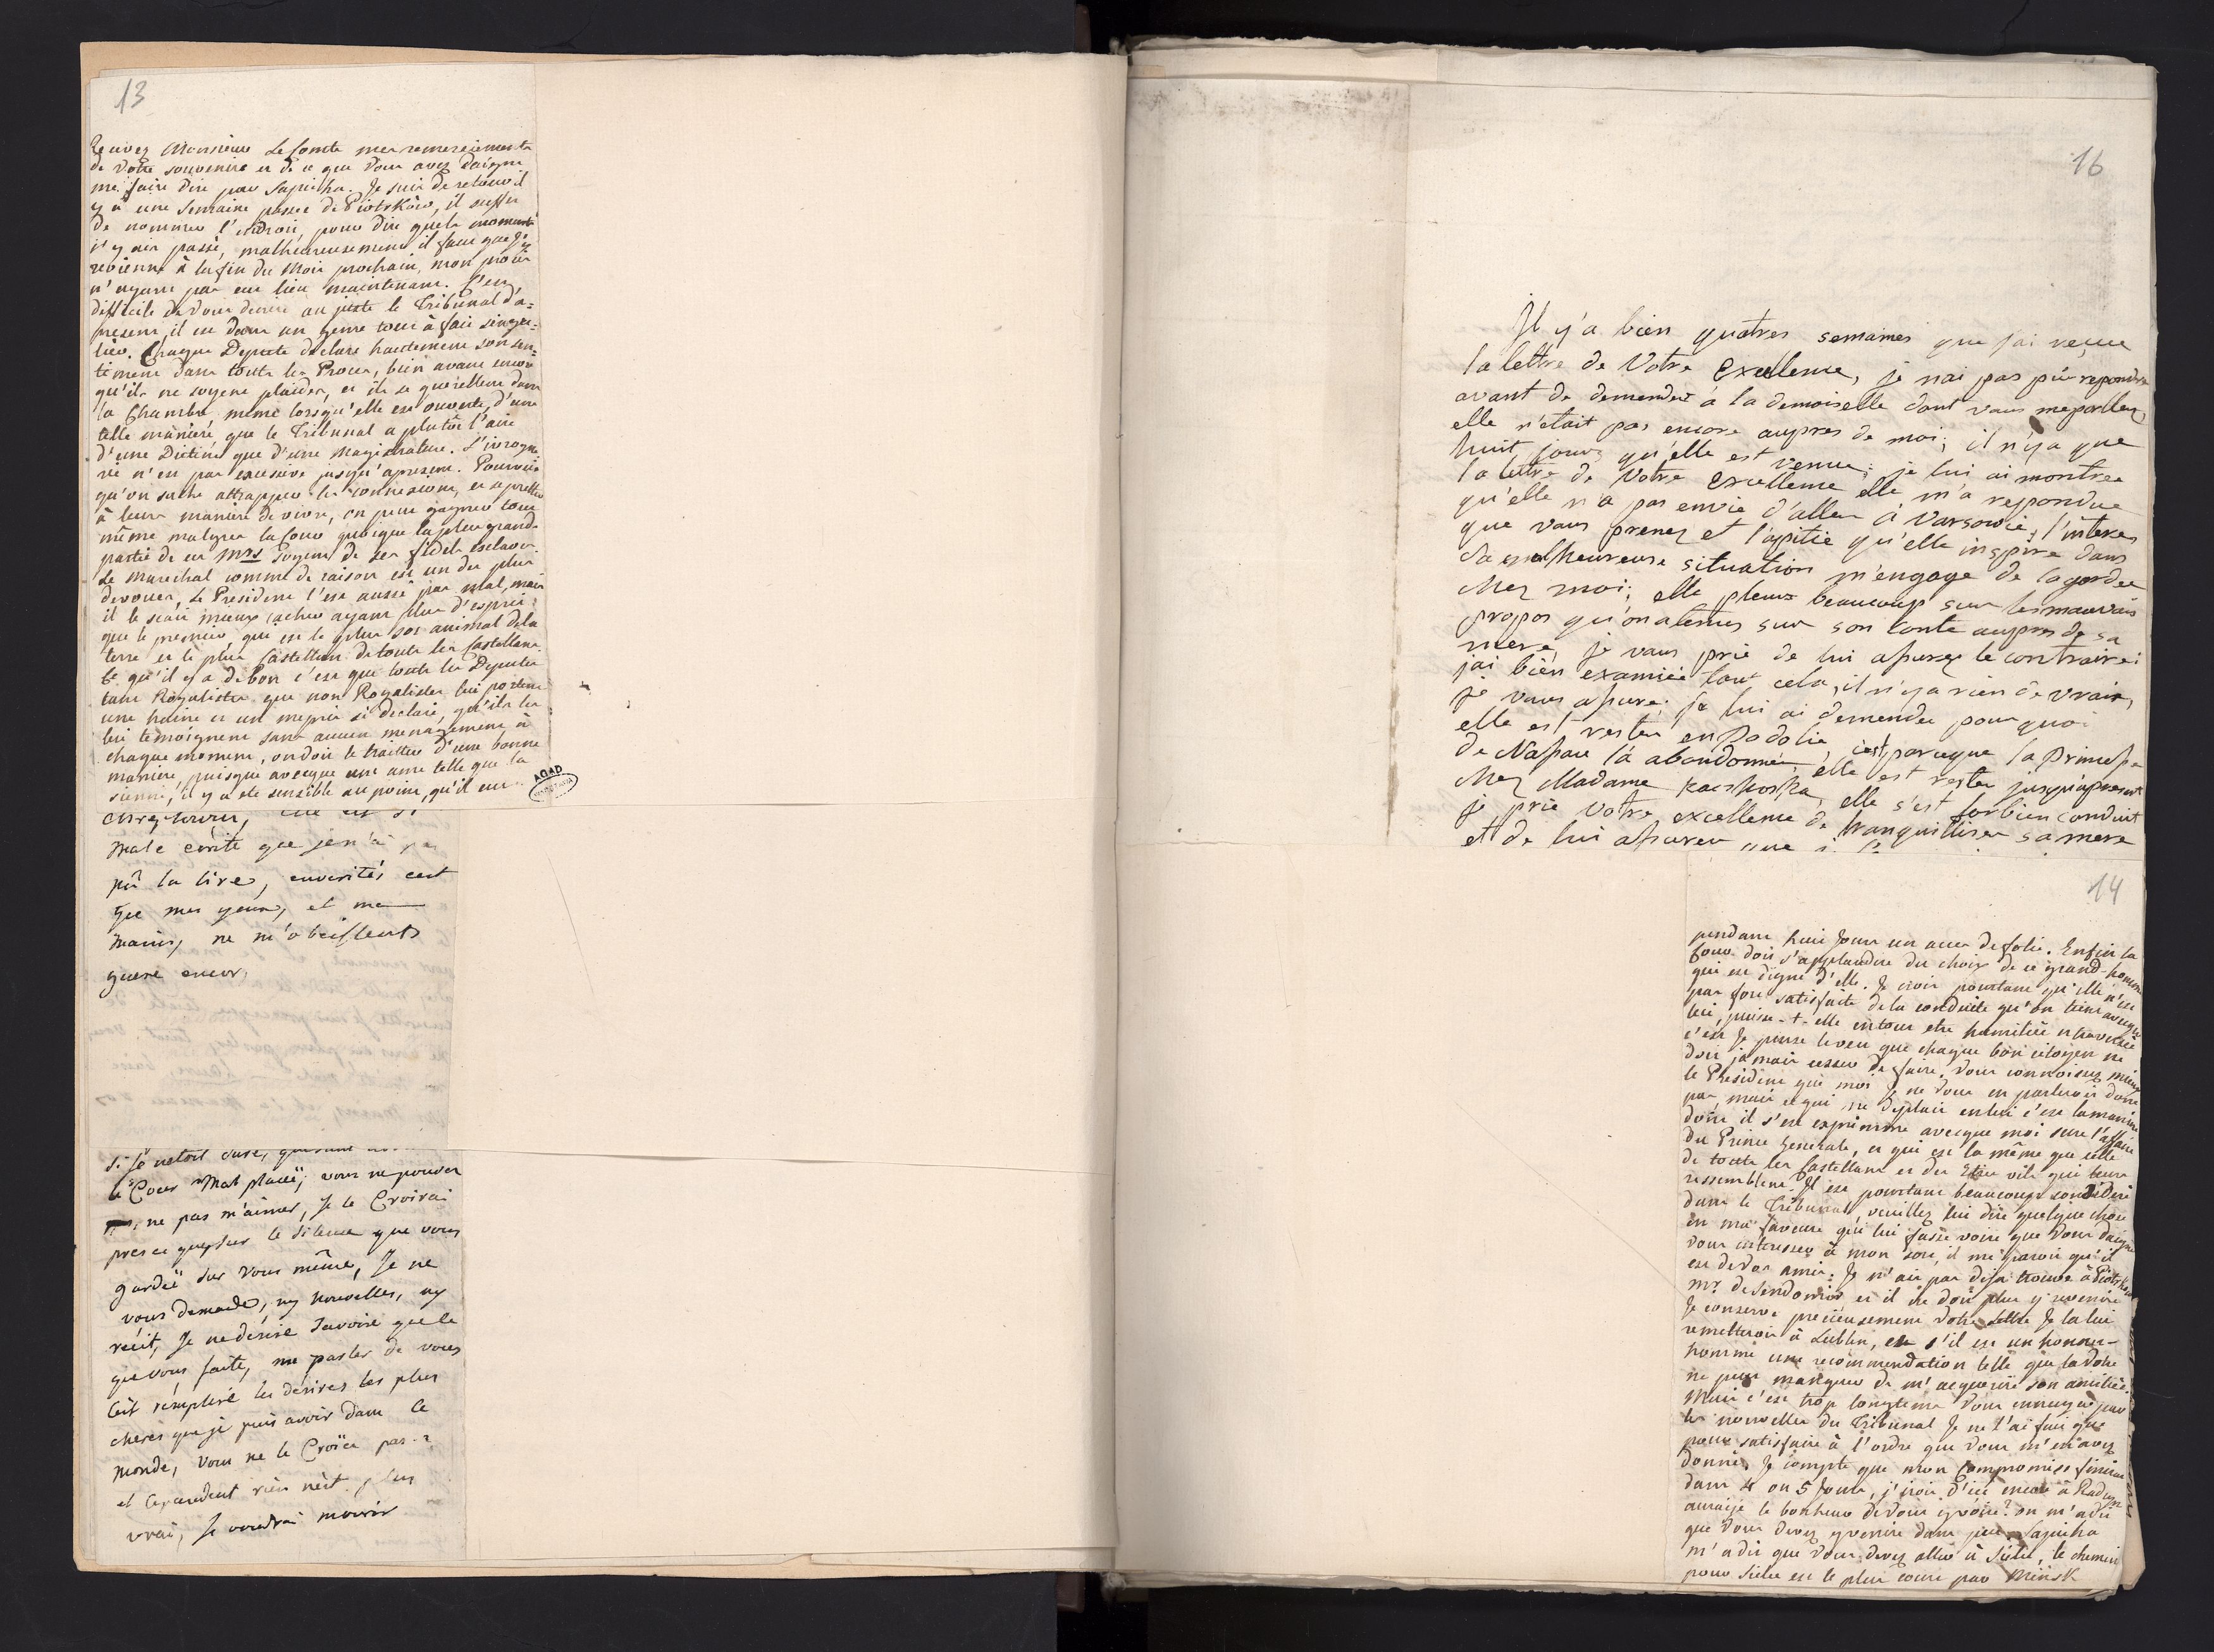 13
Recevez Monsieur Le Comte mes remerciements
de Votre souvenire et de ce que Vous avez daigné
me faire dire par Sapieha. Je suis de retour il
y a une Semaine passee de Piotrkow, il suffit
de nommer l'endroit, pour dire quels moments
j'y ais passé, malheureusement il faut que j'y
revienne à la fin du Mois prochain, mon procès
n'ayant pas eu lieu maintenant. C'est
difficile de Vous decrire au juste le Tribunal d'a=
present, il est dans un genre tout à fait singu=
lier. Chaque Deputé declare hautement son sen=
timent dans touts les Proces, bien avant encore
qu'ils ne soyent plaidés, et ils se querellent dans
la Chambre même lorsqu'elle est ouverte, d'une
telle manière que le Tribunal a plutôt l'air
d'une Dietine que d'une Magistrature. L'ivrogne
rie n'est pas excessive jusqu'apresent. Pourvu
qu'on sache attrapper les connexions, et se preter
à leurs manière de vivre, on peut gagner tout
même malgres la Cour quoique la plus grande
partie de ces Mrs soyent de ses fidels esclaves.
Le Marechal comme de raison est un des plus
devoués, Le President l'est aussi pas mal, mais
il le scait mieux cacher ayant plus d'esprit
que le premier, qui est le plus sot animal de la
terre et le plus Castellan de touts les Castellans.
Ce qu'il y a de bon c'est que touts les Deputés
tant Royalistes que non Royalistes lui portent
une haine et un mepris si declaré, qu'ils les
lui temoignent sans aucun menagement à
chaque moment, on doit le traitter d'une bonne
maniere, puisque avecque une ame telle que la
sienne, il y a eté sensible au point, qu'il eut
AGAD
male ecrite que je n'ai pas
pû la lire, en verités cest
que mes yeux, et me
mains, ne m'obeissents
guere encor,
le Coeur Mal placèë, vous ne pouvez
ne pas m'aimer, Je le Croirai
presce que sur le Silence que vous
gardèë sur vous même, Je ne
vous demande, ny nouvelles, ny
récit, Je ne désire Savoire que le
que vous faite, me parler de vous
cêt remplire les désires les plus
chéres que je puis avoir dans le
monde, Vous ne le Croïéz pas
et Cependent rién nèst plus
vrai, Je voudrai mourir
16
Il y'a bien quatres semaines que j'ai reçue
la lettre de Votre Excellence, je n'ai pas pû repondre
avant de demender à la demoiselle dont vous me parlez,
elle n'etait pas encore aupres de moi; il n'ya que
huit jours qu'elle est venue; je lui ai montree
la lettre de Votre Excellence elle m'a respondue
qu'elle n'a pas envie d'aller à Varsovie, l'interes
que vous prenez et l'apitié qu'elle inspire dans
sa malheureuse situation m'engage de la garder
chez moi; elle pleure beaucoup sur les mauvais
propos qu'on a tenus sur son conte aupres de sa
mere, je vous prie de lui assurer le contraire:
j'ai bien examiée tout cela, il n'ya rien de vrais,
je vous assure. Je lui ai demender pourquoi
elle est rester en Podolie, c'est parceque la Princesse
de Nassau l'à abandonnée, elle est rester jusqu'apresent
chez Madame Kaczkoska, elle s'est for bien conduit
je prie Votre excellence de tranquilliser sa mere
et de lui assurer que
14
pendant huit Jours un acces de folie. Enfin la
Cour doit s'applaudir du choix de ce grand-homme
qui est digne d'elle. Je crois pourtant qu'elle n'est
pas fort satisfaite de la conduite qu'on tient avecque
lui, puisse-t-elle en tout etre humiliée et traversée
c'est Je pense le voeu que chaque bon citoyen ne
doit jamais cesser de faire. Vous connoissez mieux
le President que moi Je ne Vous en parlerois donc
pas, mais ce qui me deplait en lui c'est la manière
dont il s'est exprimme avecque moi sur l'affaire
du Prince General, et qui est la même que celle
de touts les Castellans et des Etres vils qui leurs
ressemblent. Il est pourtant beaucoup consideré
dans le Tribunal, veuillez lui dire quelque chose
en ma faveure qui lui fasse voire que Vous daignez
Vous interesser à mon sort, il me parois qu'il
est de Vos amis. Je n'ais pas deja trouvé à Piotrkow
Mr. de Sendomir et il ne doit plus y revenire
Je conserve precieusement Votre lettre Je la lui
remetterois à Lublin, et s'il est un honnet-
homme une recommendation telle que la Votre
ne peut manquer de m'acquerire son amitiée.
Mais c'est trop longtems Vous ennuyé par
les nouvelles du Tribunal Je ne l'ai fait que
pour satisfaire à l'ordre que Vous m'en avez
donné. Je compte que mon Compromiss finira
dans 4 ou 5 Jours, j'irois d'ici encore à Radzyn
auraije le bonheur de Vous y voire? on m'a dit
que Vous devez y venire dans peu, Sapieha
m'a dit que Vous devez aller à Sielce, le chemin
pour Sielce est le plus court par Minsk